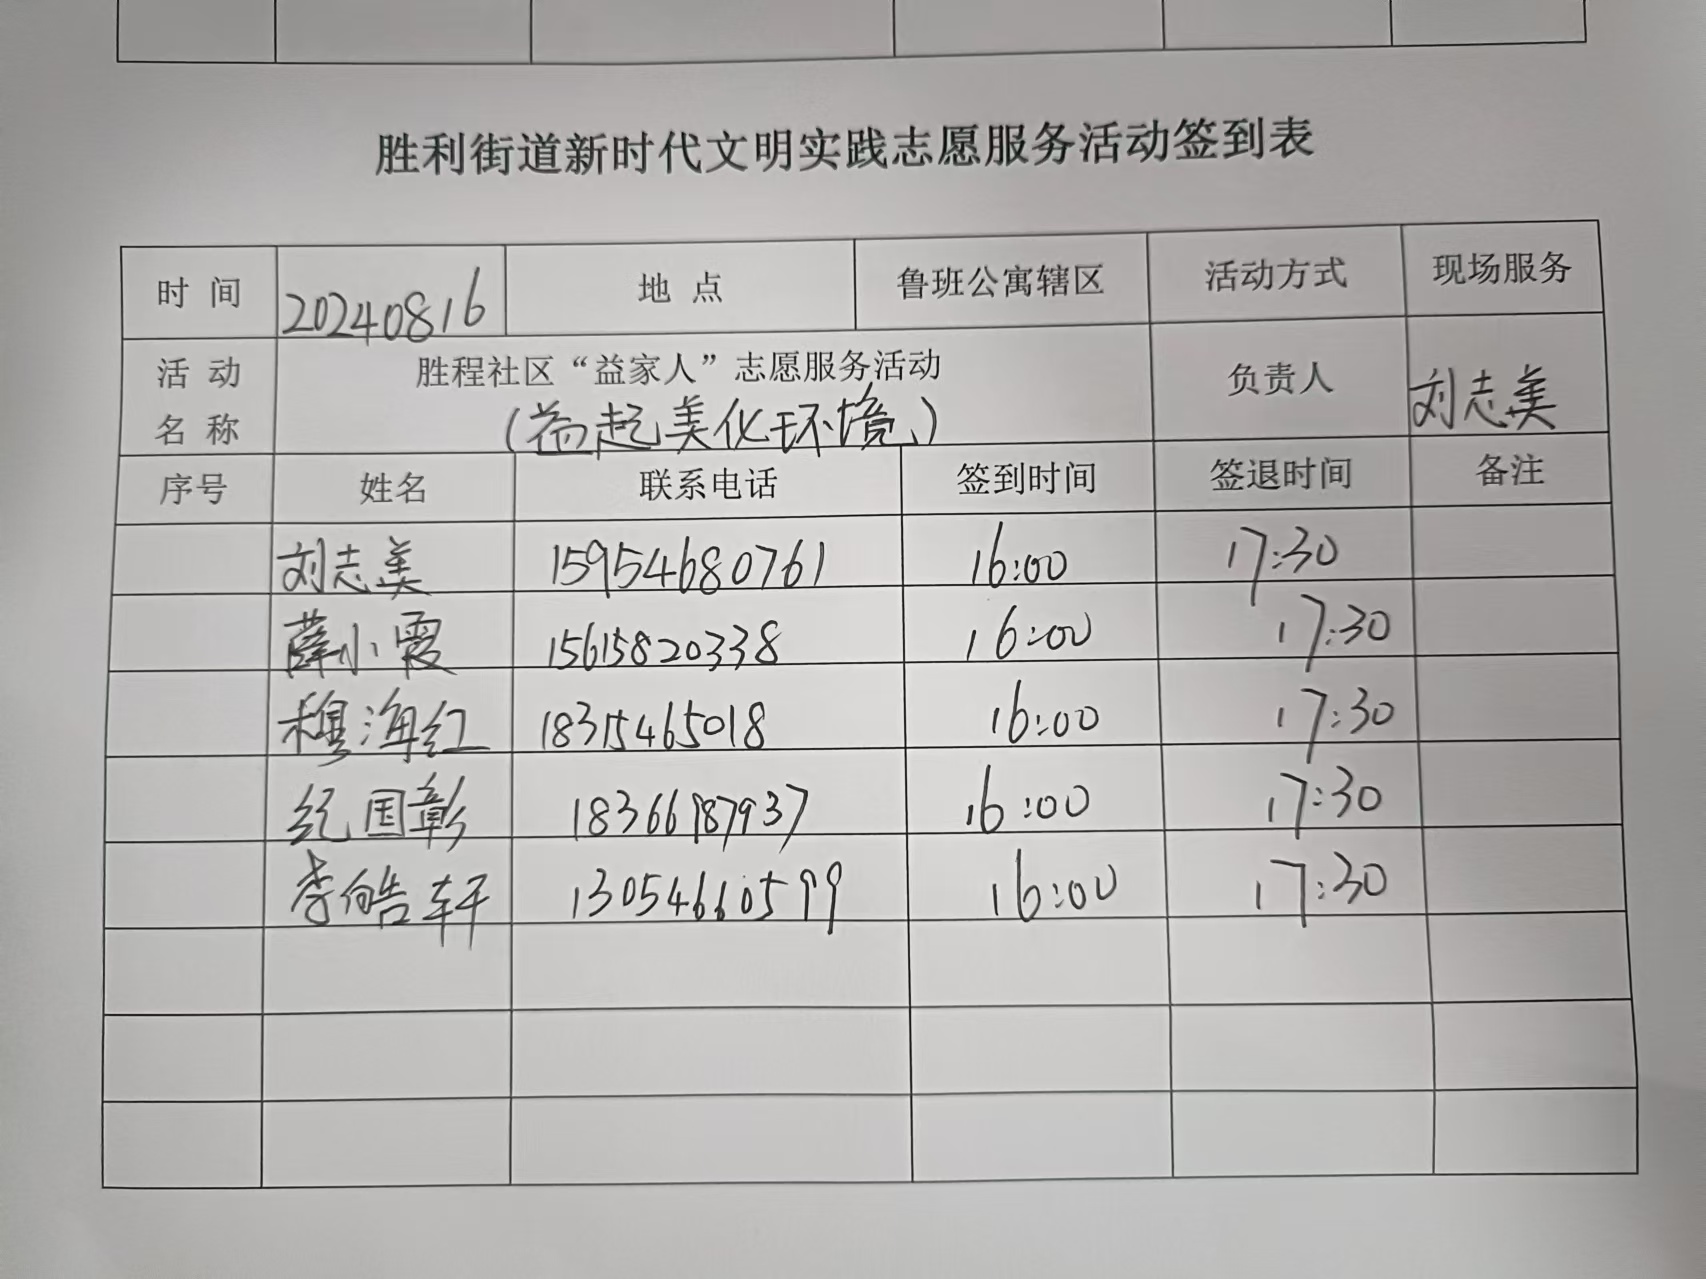 胜利街道新时代文明实践志愿服务活动签到表
时 间 20240816 地 点 鲁班公寓辖区 活动方式 现场服务
活 动 名 称 胜程社区“益家人”志愿服务活动 负责人 刘志美
(益起美化环境)
序号 姓名 联系电话 签到时间 签退时间 备注
刘志美 15954680761 16:00 17:30
薛小霞 15615820338 16:00 17:30
穆海红 18315465018 16:00 17:30
纪国彰 18366987937 16:00 17:30
李皓轩 13054660599 16:00 17:30